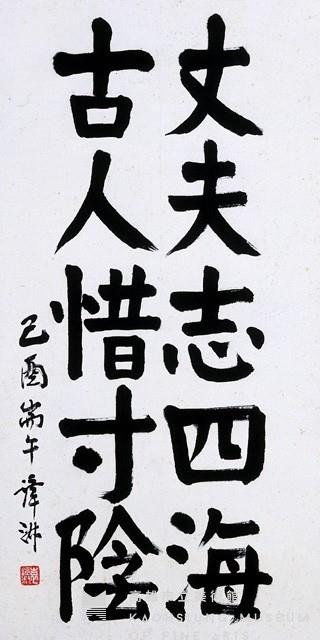 丈夫志四海
古人惜寸陰
己酉端午
高雄市立美術館
KAOHSIUNG MUSEUM
OF FINE ARTS